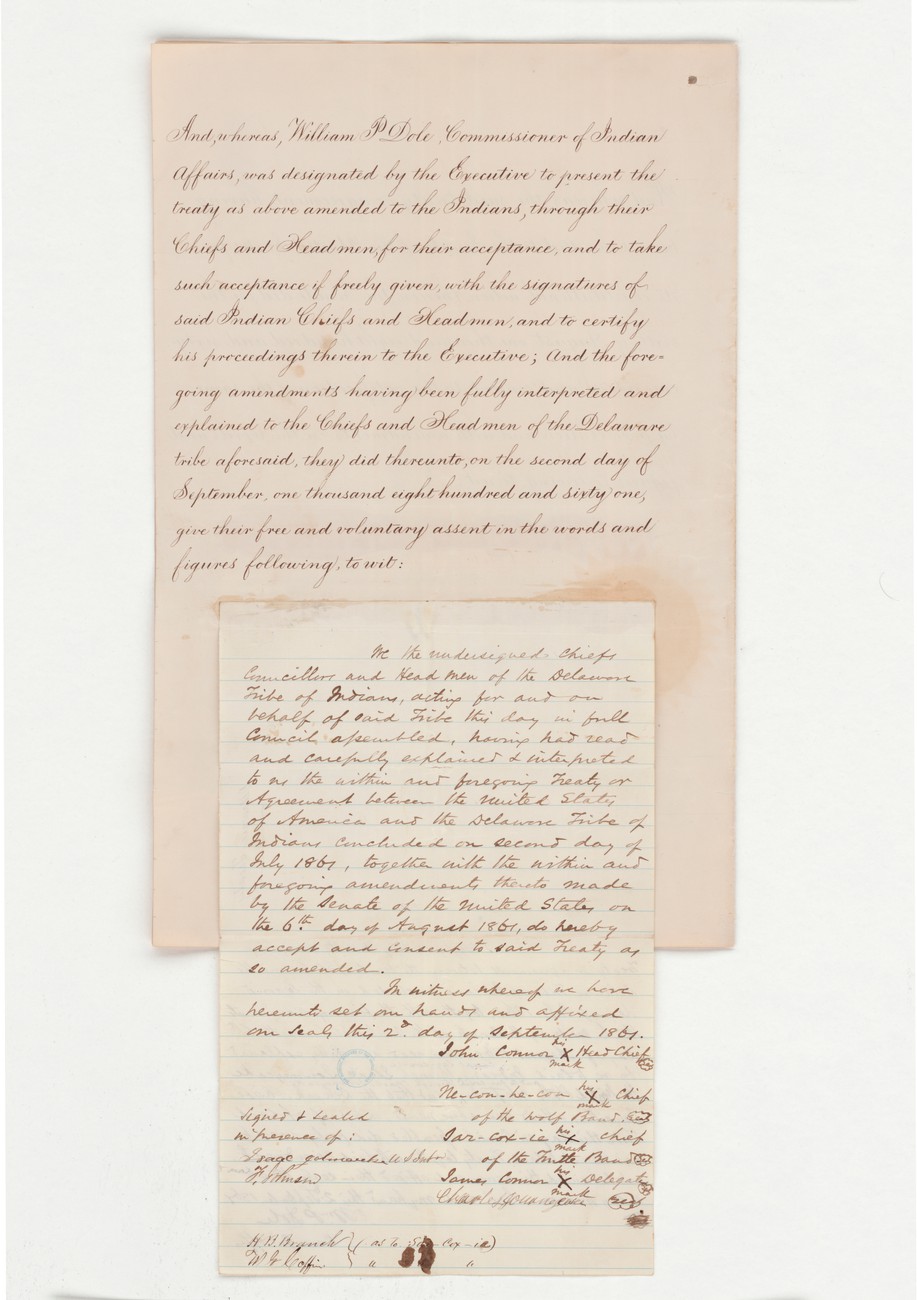 And, whereas, William P Dole, Commissioner of Indian
Affairs, was designated by the Executive to present the
treaty as above amended to the Indians, through their
Chiefs and Headmen, for their acceptance, and to take
such acceptance if freely given, with the signatures of
said Indian Chiefs and Headmen, and to certify
his proceedings therein to the Executive; And the fore=
going amendments having been fully interpreted and
explained to the Chiefs and Headmen of the Delaware
tribe aforesaid, they did thereunto, on the second day of
September, one thousand eight hundred and sixty one,
give their free and voluntary assent in the words and
figures following, to wit:
We the undersigned Chiefs
Councillors and Head Men of the Delaware
Tribe of Indians, acting for and on
behalf of said Tribe this day in full
Council assembled, having had read
and carefully explained & interpreted
to us the within and foregoing Treaty or
Agreement between the United States
of America and the Delaware Tribe of
Indians concluded on second day of
July 1861, together with the within and
foregoing amendments thereto made
by the Senate of the United States on
the 6th day of August 1861, do hereby
accept and consent to said Treaty as
so amended.
In witness whereof we have
hereunto set our hands and affixed
our Seals this 2d day of September 1861.
John Connor his X mark Head Chief
Ne-con-he-con his X mark Chief
of the Wolf Band. Seal
Signed & sealed
in presence of:
Sar-cox-ie his X mark chief
of the Turtle Band
Isaac
F. Johnson
James Connor his X mark Delegate
Charles Journeycake Seal
H. B. Branch ( as to Sar-Cox-ie)
W G Coffin " "